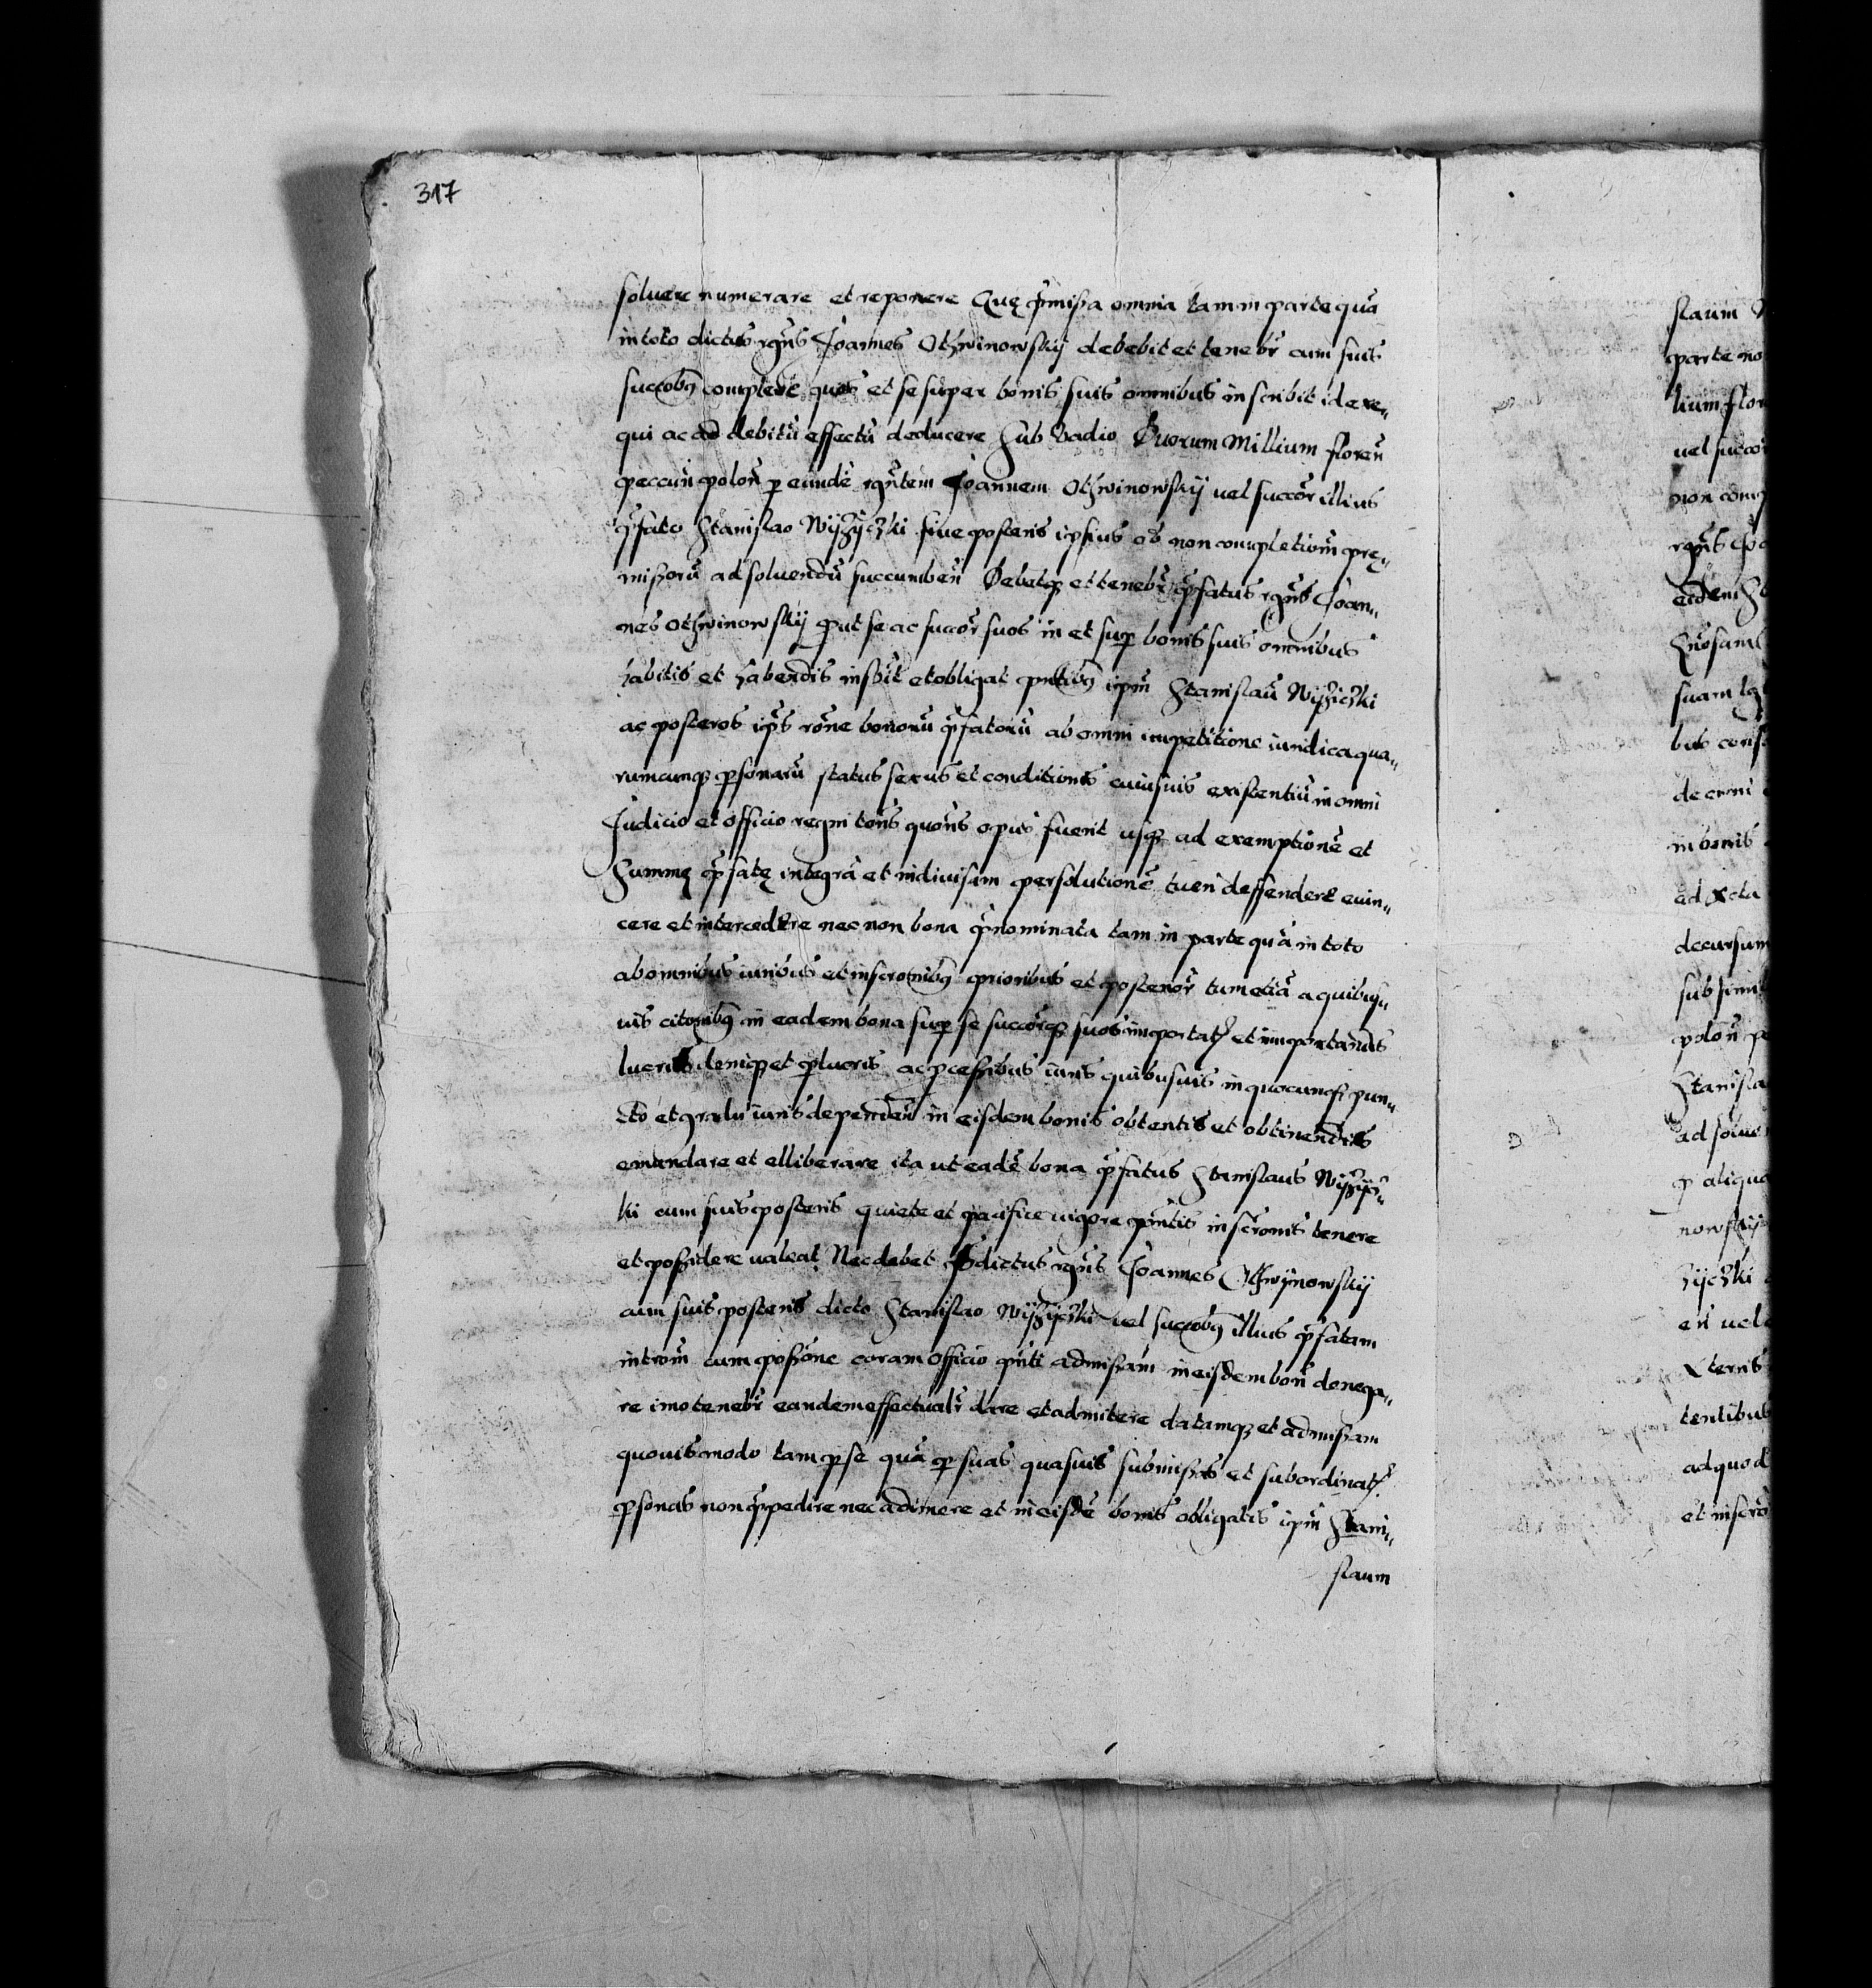 317
soluere numerare et reponere Quę p̃missa omnia tam in parte quã
in toto dictus rgñs Joannes Othwinowskij debebit et tenebr̃ cum suis
succobꝫ complere quos et se super bonis suis omnibus inscribit id exe„
qui ac ad debitũ effectũ deducere Sub Vadio Duorum Millium floreñ
peccuñ poloñ p eundẽ rgñtem Joannem Othwinowskij uel succor̃ illius
p̃fato Stanislao Wijżijczki siue posteris ipsius ob non completioñ pre„
missorũ ad soluendũ succumbeñ Debetqꝫ et tenebr̃ p̃fatus rgñs Joan„
nes Othwinowskij put se ac succor̃ suos in et sup bonis suis omnibus
habitis et habendis inscbit et obligat pñtibꝫ ipm̃ Stanislaũ Wiżiczki
ac posteros ips̃ rõne bonorũ p̃fatorũ ab omni impetitione iuridica qua„
rumcunqꝫ psonarũ status sexus et conditionis cuiusuis existentiũ in omni
Judicio et officio regni toñs quoñs opus fuerit usqꝫ ad exemptionẽ et
Summę p̃fatę integrã et indiuisam persolutionẽ tueri deffendere euin„
cere et intercedere nec non bona p̃nominata tam in parte quã in toto
ab omnibus iuribus et inscronibꝫ prioribus et posterior̃ tum etiã a quibusu„
uis citonibꝫ in eadem bona sup se succorqꝫ suos importatꝭ et importandis
lucris deniqꝫ et plucris ac pcessibus iuris quibusuis in quocunqꝫ pun„
cto et gradu iuris dependeñ in eisdem bonis obtentis et obtinendis
emundare et elliberare ita ut eadẽ bona p̃fatus Stanislaus Wijżijcz„
ki cum suis posteris quiete et pacifice uigore pñtis inscronis tenere
et possidere ualeat Nec debet p̃dictus rgñs Joannes Othwijnowskij
cum suis posteris dicto Stanislao Wijżijczki uel succobꝫ illius p̃fatam
introm̃ cum possione coram officio pñti admissam in eisdem boñ denega„
re imo tenebr̃ eandem effectualr̃ dare et admitere datamqꝫ et admissam
quouismodo tam p se quã p suas quasuis submissas et subordinatꝭ
psonas non p̃pedire nec adimere et in eisdẽ bonis obligatis ipm̃ Stani„
slaum
slaum
parte no
lium flor
uel succor
non comp
rgñs Joa
eidem St
suam
bus cons
decerni
in bonis
ad
decursum
sub simil
poloñ pe
Stanisla
ad solue
p aliquo
nowskij
żijczki
eñ uel
xternis
tentibus
ad quod
et inscro